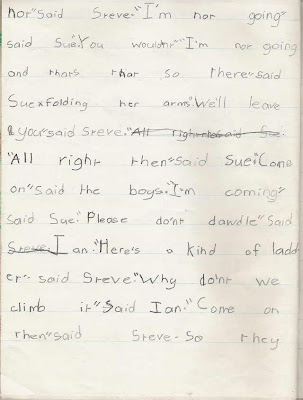 not" said Steve. "I'm not going"
said Sue. "You wouldn't" "I'm not going
and thats that so there" said
Sue folding her arms. "We'll leave
you" said Steve. "All right" said Sue.
"All right then" said Sue. "Come
on" said the boys. "I'm coming"
said Sue. "Please do'nt dawdle" Said
Steve. Ian. "Here's a kind of ladd
er" said Steve. "Why do'nt we
climb it" Said Ian. "Come on
then" said Steve. So they